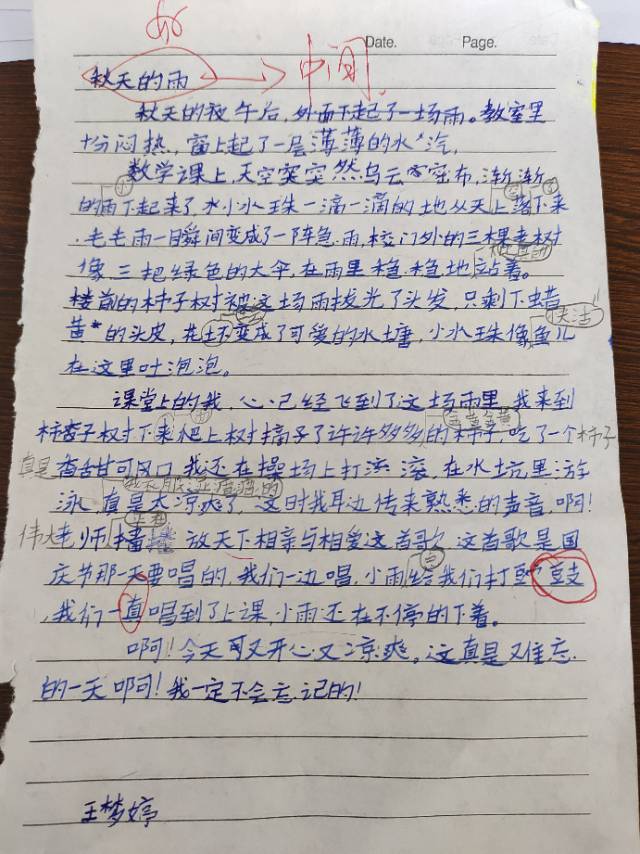 Date. Page.
秋天的雨 中间
秋天的夜午后,外面下起了一场雨。教室里
十分闷热,窗上起了一层薄薄的水汽,
数学课上,天空突突然乌云密布,渐渐
的雨下起来了,水小水珠一滴一滴的地从天上落下来
毛毛雨一瞬间变成了一阵急雨,校门外的三棵老树
像三把绿色的大伞,在雨里稳稳地站着。
楼前的柿子树被这场雨拔光了头发,只剩下蜡
黄的头皮,花坛变成了可爱的水塘,小水珠像鱼儿 快活
在这里吐泡泡。
课堂上的我,心己经飞到了这场雨里,我来到
柿子树下来爬上树摘了许许多多的柿子,吃了一个柿子
真是香甜可口,我还在操场上打滚,在水坑里游
泳,真是太凉爽了,这时我耳边传来熟悉的声音,啊!
伟大老师播放天下相亲与相爱这首歌,这首歌是国
庆节那一天要唱的,我们一边唱,小雨给我们打鼓
我们一真唱到了上课,小雨还在不停的下着。
啊!今天可又开心又凉爽,这真是又难忘
的一天啊!我一定不会忘记的!
王梦婷